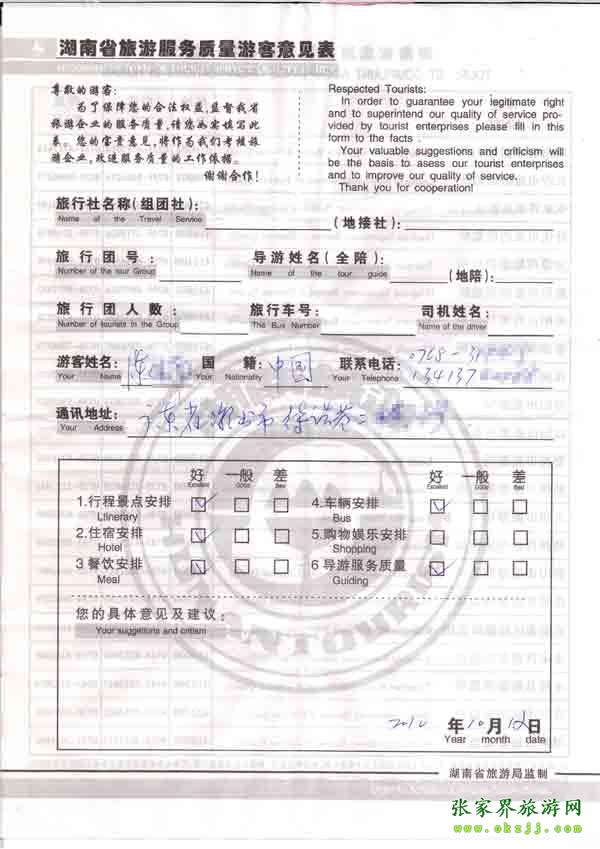 湖南省旅游服务质量游客意见表
尊敬的游客:
为了保障您的合法权益,监督我省
旅游企业的服务质量,请您如实填写此
表。您的宝贵意见,将作为我们考核旅
游企业,改进服务质量的工作依据。
谢谢合作!
Respected Tourists:
In order to guarantee your legitimate right
and to superintend our quality of service pro-
vided by tourist enterprises please fill in this
form to the facts .
Your valuable suggestions and criticism will
be the basis to asess our tourist enterprises
and to improve our quality of service.
Thank you for cooperation!
旅行社名称(组团社): (地接社):
Name of the Travel Service
旅行团号: 导游姓名(全陪) (地陪):
Number of the tour Group Name of the tour guide
旅行团人数: 旅行车号: 司机姓名:
Number of tourists in the Group The Bus Number Name of the driver
游客姓名: 国籍: 中国 联系电话: 0768-
Your Name Your Nationality Your Telephone 134137
通讯地址: 广东省潮州市
Your Address
好 一般 差 好 一般 差
Excellent Good Bad Excellent Good Bad
1.行程景点安排 4.车辆安排
Ltinerary Bus
2.住宿安排 5.购物娱乐安排
Hotel Shopping
3 餐饮安排 6 导游服务质量
Meal Guiding
您的具体意见及建议:
Your suggetions and critism
2010 年 10 月 12 日
Year month date
湖南省旅游局监制
张家界旅游网
www.okzjj.com